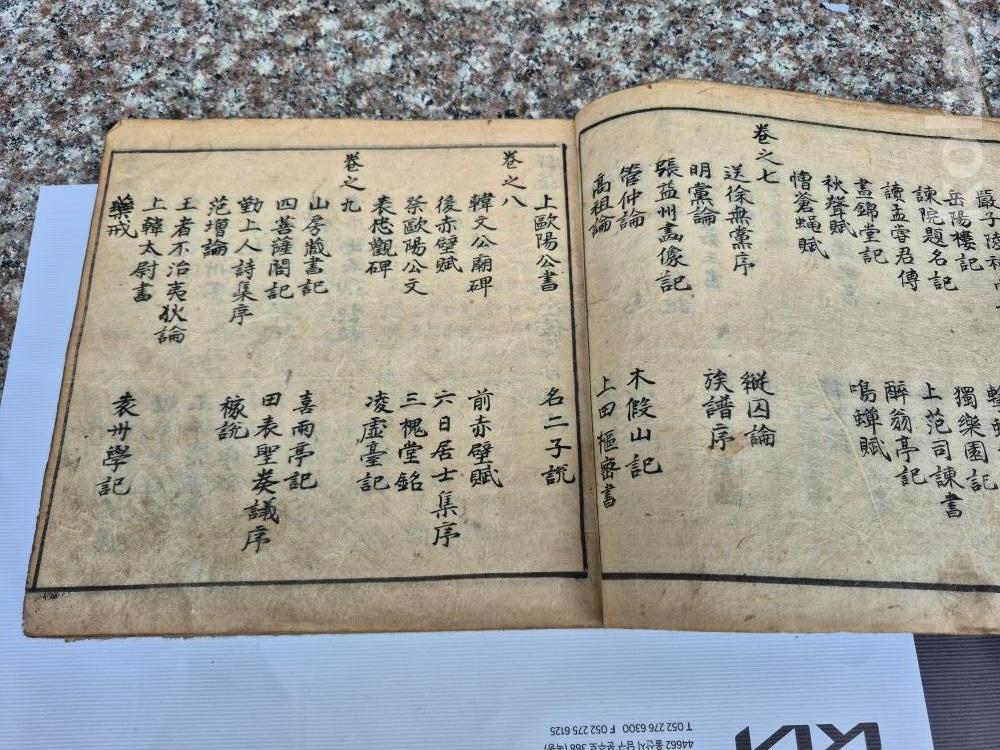 岳陽樓記 獨樂園記
諫院題名記 上范司諫書
讀孟嘗君傳 醉翁亭記
晝錦堂記 鳴蟬賦
秋聲賦
憎蒼蠅賦
卷之七
送徐無黨序 縱囚論
明黨論 族譜序
張益州畵像記
管仲論 木假山記
高祖論 上田樞密書
上歐陽公書 名二子說
卷之八
韓文公廟碑 前赤壁賦
後赤壁賦 六日居士集序
祭歐陽公文 三槐堂銘
表忠觀碑 凌虛臺記
卷之九
山房藏書記 喜雨亭記
四菩薩閣記 田表聖奏議序
勤上人詩集序 稼說
范增論
王者不治夷狄論
上韓太尉書
藥戒 袁州學記
44662 울산시 남구 문수로 368 (옥동)
T 052 276 6300 F 052 275 6125